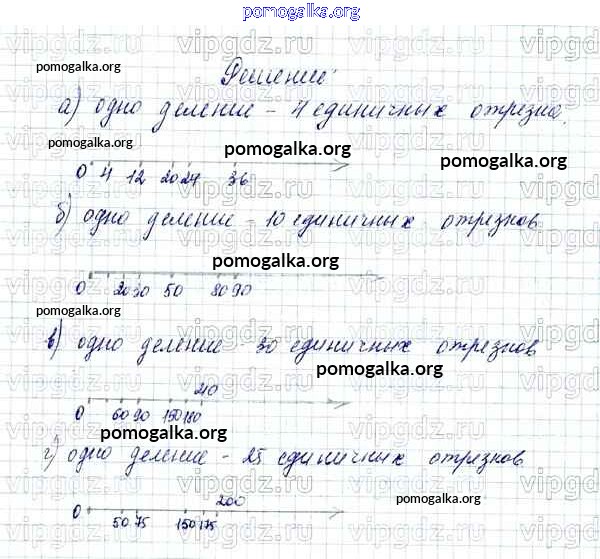 pomogalka.org
vipgdz.ru vipgdz.ru vipgdz.ru vipgdz.ru
pomogalka.org pomogalka.org
Решение:
vipgdz.ru vipgdz.ru vipgdz.ru vipgdz.ru
а) одно деление - 4 единичных отрезка.
pomogalka.org pomogalka.org
0 4 12 20 24 36
б) одно деление - 10 единичных отрезков
pomogalka.org
0 20 30 50 80 90
pomogalka.org
в) одно деление - 30 единичных отрезков
pomogalka.org
210
0 60 90 150 180
pomogalka.org
г) одно деление - 25 единичных отрезков
pomogalka.org
200
0 50 75 150 175